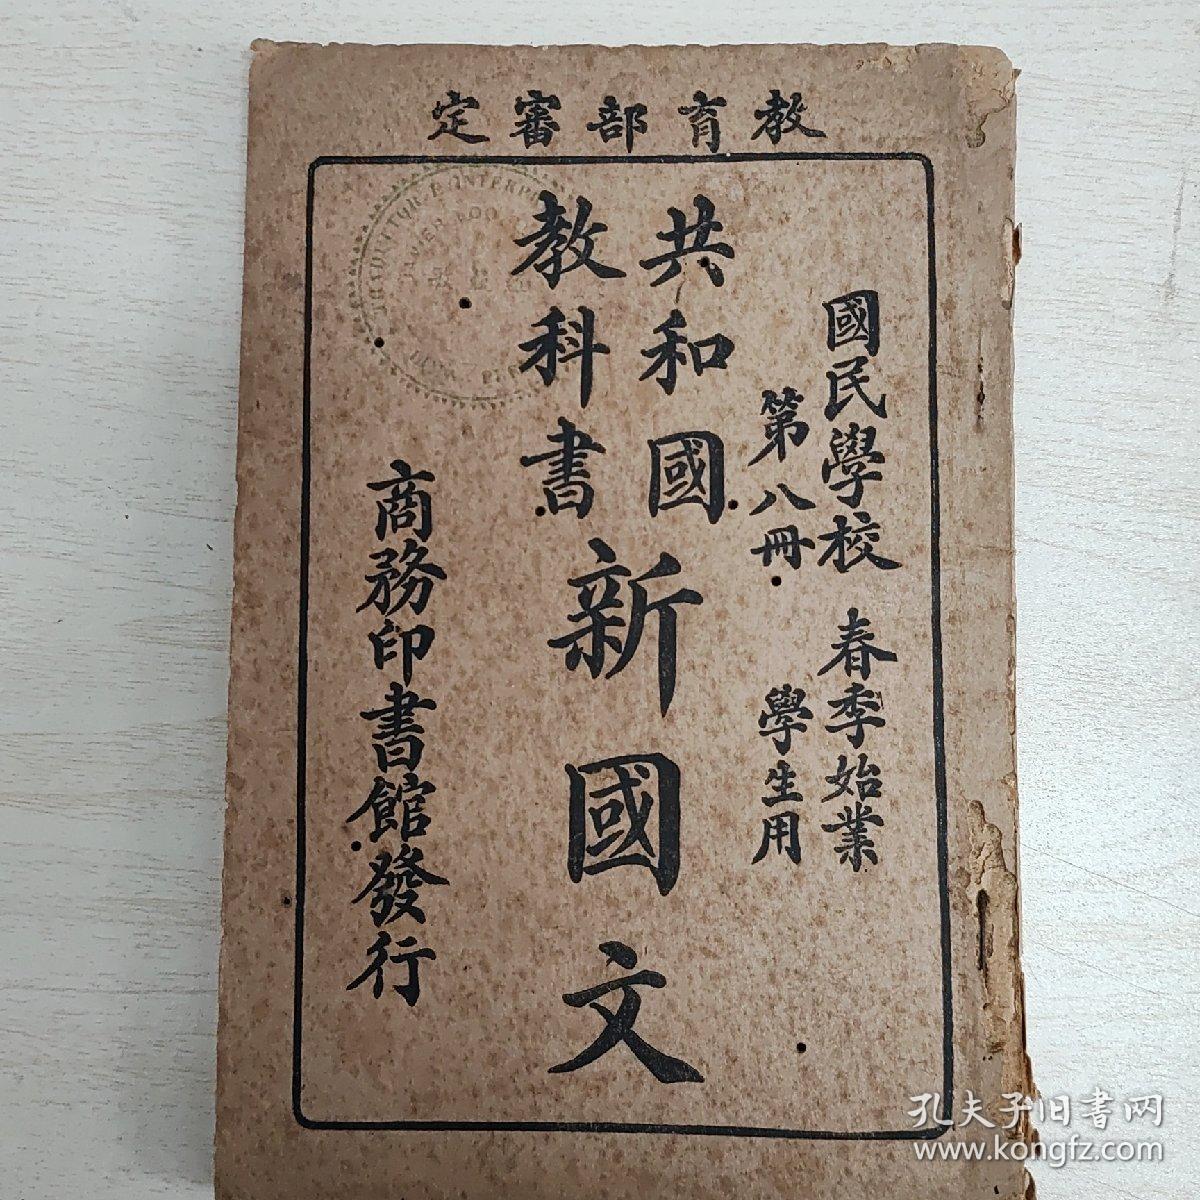 教育部審定
國民學校 春季始業
第八冊 學生用
共和國
教科書
新國文
商務印書館發行
孔夫子旧书网
www.kongfz.com